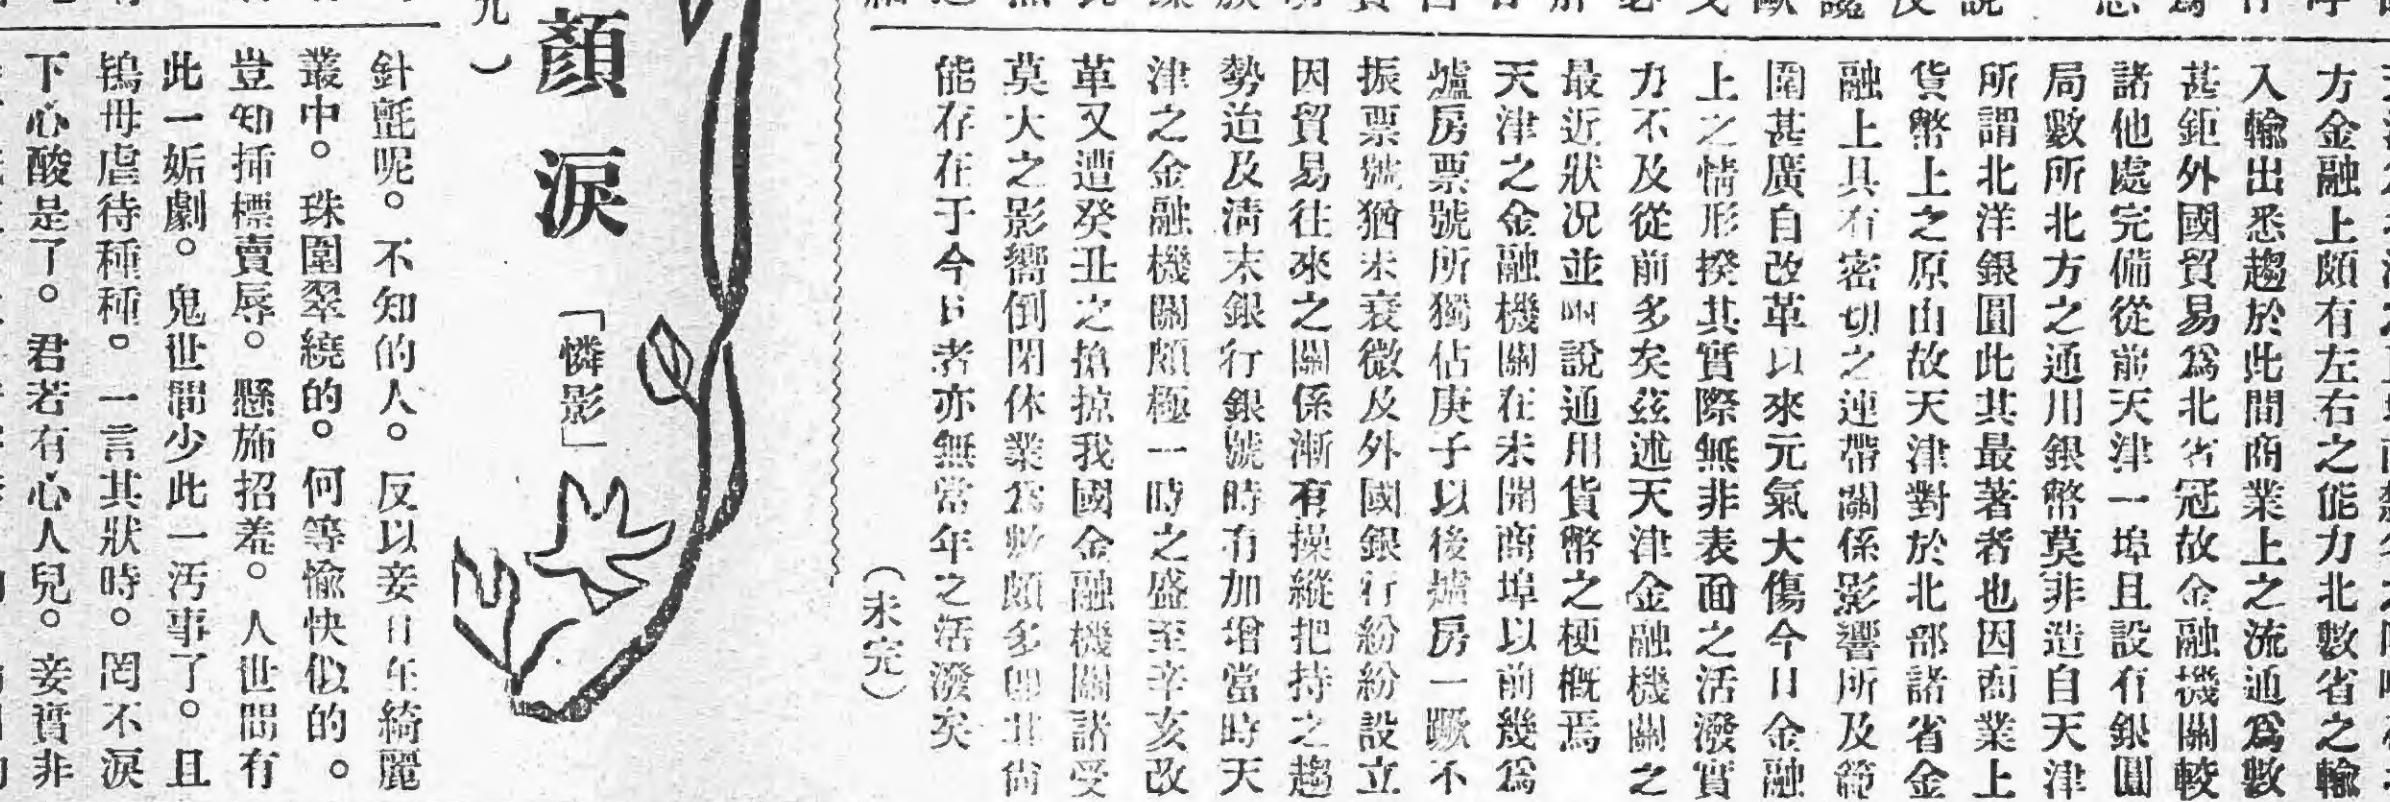 方金融上頗有左右之能力北數省之輸
入輸出悉趨於此間商業上之流通爲數
甚鉅外國貿易爲北省冠故金融機關較
諸他處完備從前天津一埠且設有銀圓
局數所北方之通用銀幣莫非造自天津
所謂北洋銀圓此其最著者也因商業上
貨幣上之原由故天津對於北部諸省金
融上具有密切之連帶關係影響所及範
圍甚廣自改革以來元氣大傷今日金融
上之情形揆其實際無非表面之活潑實
力不及從前多矣茲述天津金融機關之
最近狀況並附說通用貨幣之梗概焉
天津之金融機關在未開商埠以前幾爲
爐房票號所獨佔庚子以後爐房一蹶不
振票號猶未衰微及外國銀行紛紛設立
因貿易往來之關係漸有操縱把持之趨
勢迨及淸末銀行銀號時有加增當時天
津之金融機關頗極一時之盛至辛亥改
革又遭癸丑之搶掠我國金融機關諸受
莫大之影響倒閉休業爲數頗多卽其尙
能存在于今日者亦無當年之活潑矣
(未完)
顏淚
「憐影」
針氈呢。不知的人。反以妾日在綺麗
叢中。珠圍翠繞的。何等愉快似的。
豈知插標賣辱。懸旆招羞。人世間有
此一妬劇。鬼世間少此一汚事了。且
鴇母虐待種種。一言其狀時。罔不淚
下心酸是了。君若有心人兒。妾實非